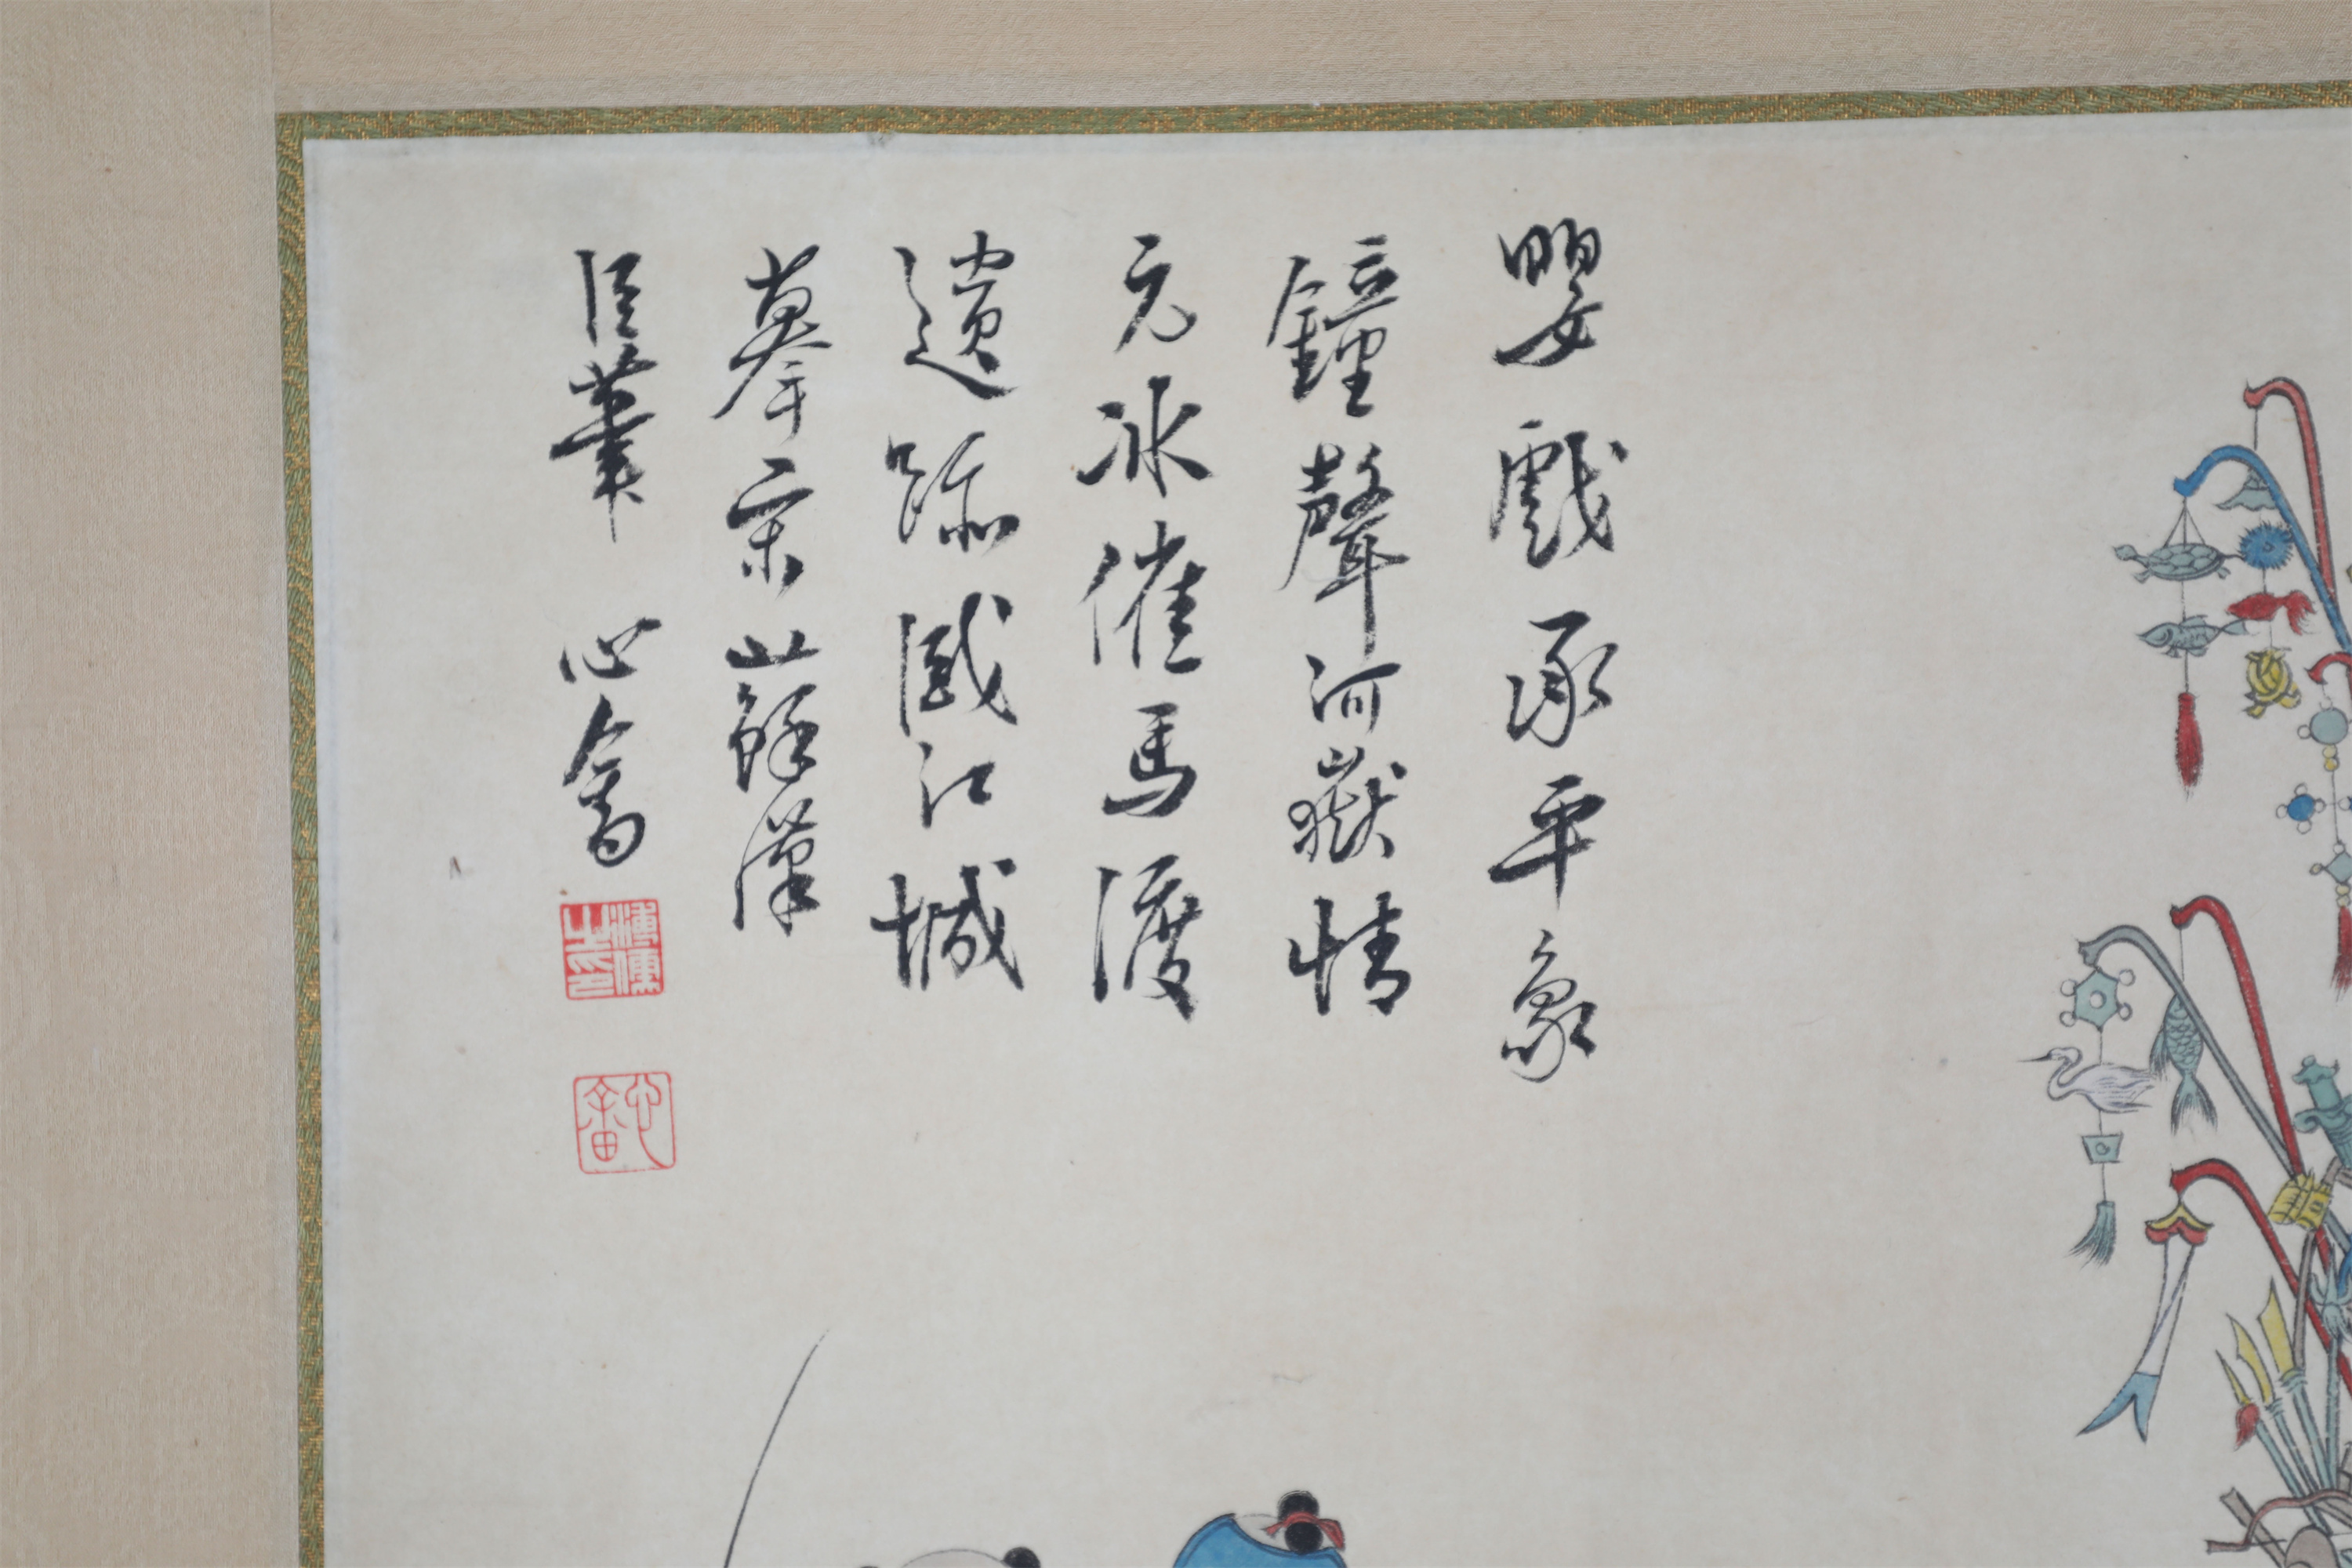 嬰戲承平象
鐘聲河嶽情
元冰催馬渡
遺跡江城
摹宋蘇漢
臣筆 心畬
溥儒之印
心畬